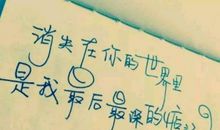 消失在你的世界里
是我最后最深的